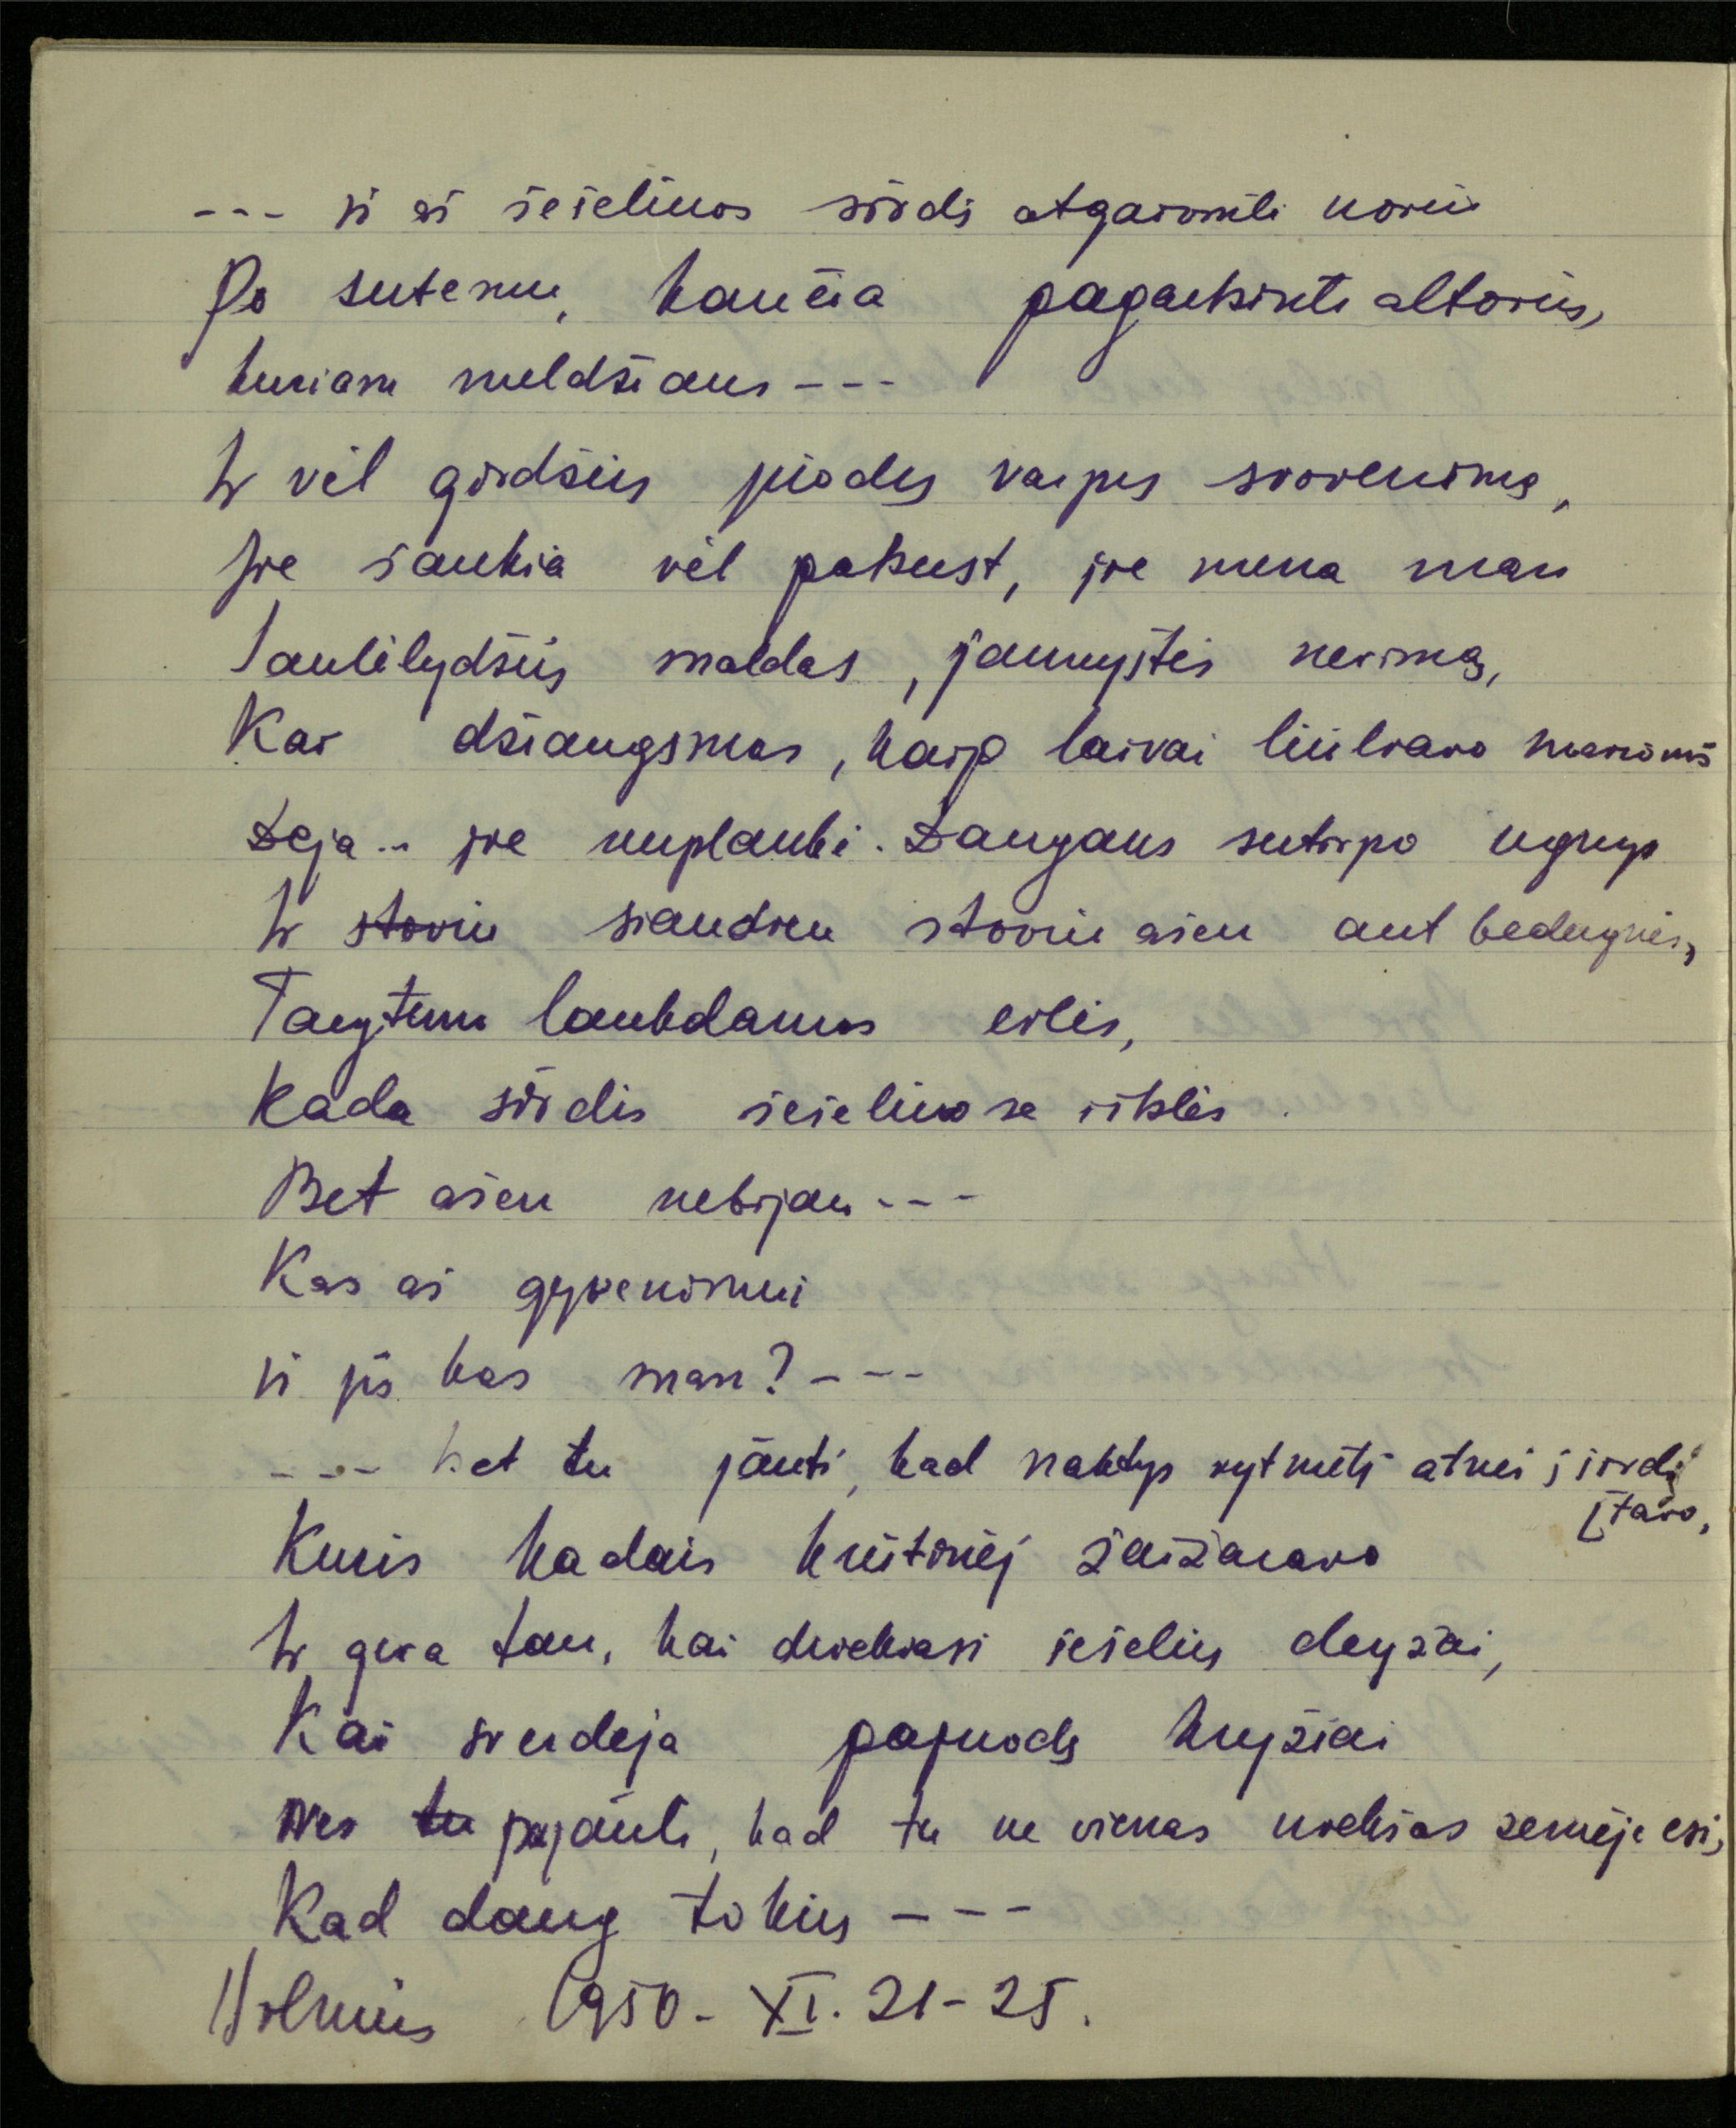 --- Ir aš šešėliuos širdį atgaivinti noriu
Po sutemų, kančia pagarbinti altorių,
kuriam meldžiaus ---
Ir vėl girdžiu juodų varpų skambenimą,
Jie šaukia vėl pabust, jie mena man
Saulėlydžių maldas, jaunystės nerimą,
Kai džiaugsmas, kaip laivai liūliavo mariomis
Deja... jie nuplaukė. Daugaus sutirpo ugnys
Ir stoviu šiandien stoviu ašen ant bedugnės,
Tarytum laukdamas eilės,
Kada širdis šešėliuose ilsės.
Bet ašen nebijau ---
Kas aš gyvenimui
ir jis kas man? ---
--- bet tu jauti, kad naktys rytmetį atneš į širdį
[tavo,
Kuris kadais krūtinėj žaižaravo
Ir gera tau, kai driekiasi šešėlių dryžai,
Kai svyrdėja pajuodę kryžiai
Nes tu pajauti, kad tu ne vienas viešias žemėje esi,
Kad daug tokių ---
Vilnius 1950 - XI. 21-25.